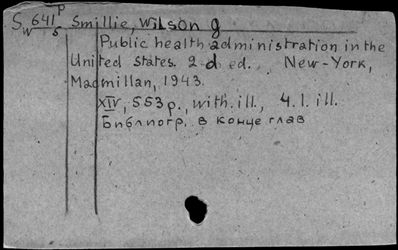 S 641 p Smillie, Wilson g
w 5
Public health administration in the
United States. 2-d ed. New-York,
Macmillan, 1943.
XIV, 553 p., with. ill., 4. l. ill.
Библиогр. в конце глав